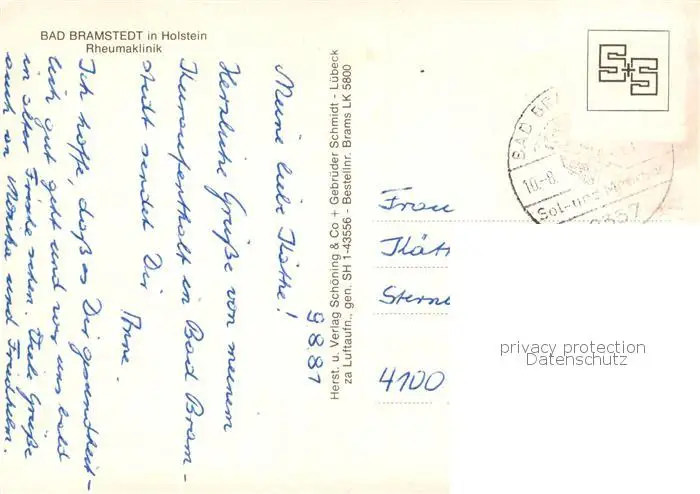 BAD BRAMSTEDT in Holstein
Rheumaklinik
9.8.81
Meine liebe Käthe!
Herzliche Grüße von meinem
Kuraufenthalt in Bad Bram-
stedt sendet Dir
Ich hoffe, daß es Dir gesundheit-
lich gut geht und wir uns bald
in alter Frische sehen. Viele Grüße
auch an Monika und Friedhelm.
Herst. u. Verlag Schöning & Co + Gebrüder Schmidt - Lübeck
za Luftaufn., gen. SH 1-43556 - Bestellnr. Brams LK 5800
S+S
BAD BR
10.-8.
Sol- und Moor
2357
Frau
Käth
Sterne
4100
privacy protection
Datenschutz